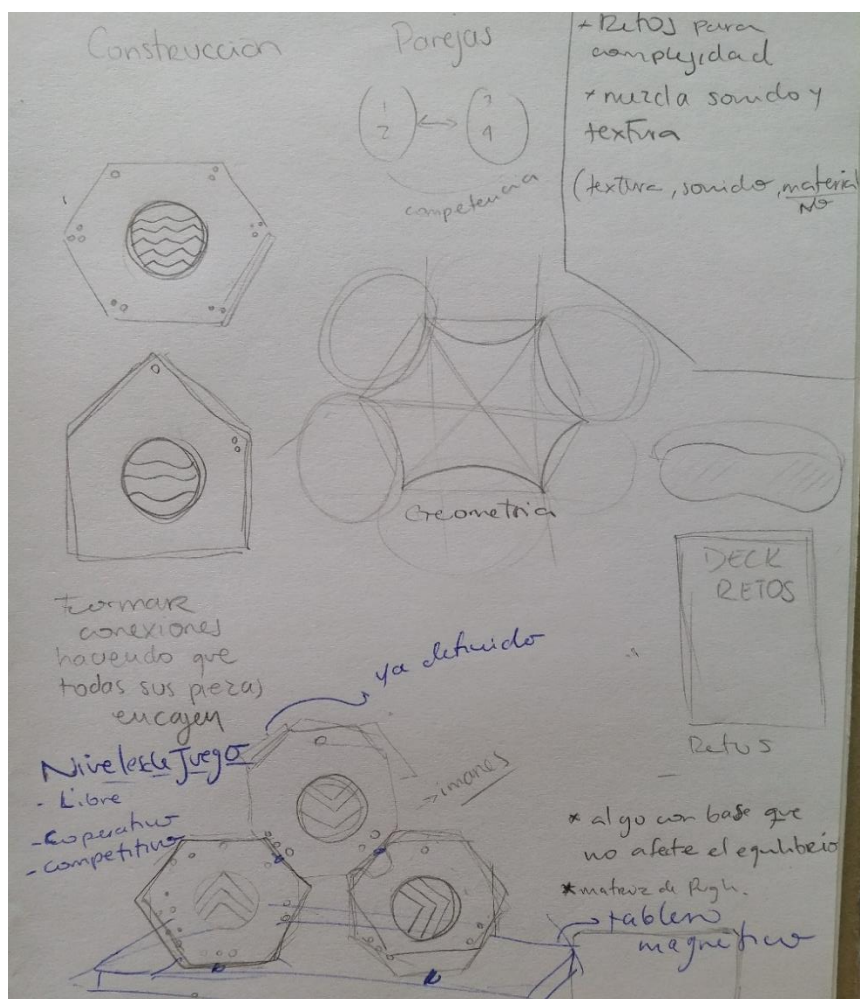 Construcción
Parejas
1
2
?
4
competencia
+ Retos para
complejidad
* mezcla sonido y
textura
(textura, sonido, material
NO
Geometria
DECK
RETOS
Retos
Formar
conexiones
haciendo que
todas sus piezas
encajen
ya definido
Niveles de Juego
- Libre
- Coperativo
- competitivo
-> imanes
* algo con base que
no afete el equlibrio
* matriz de
tablero
magnetico